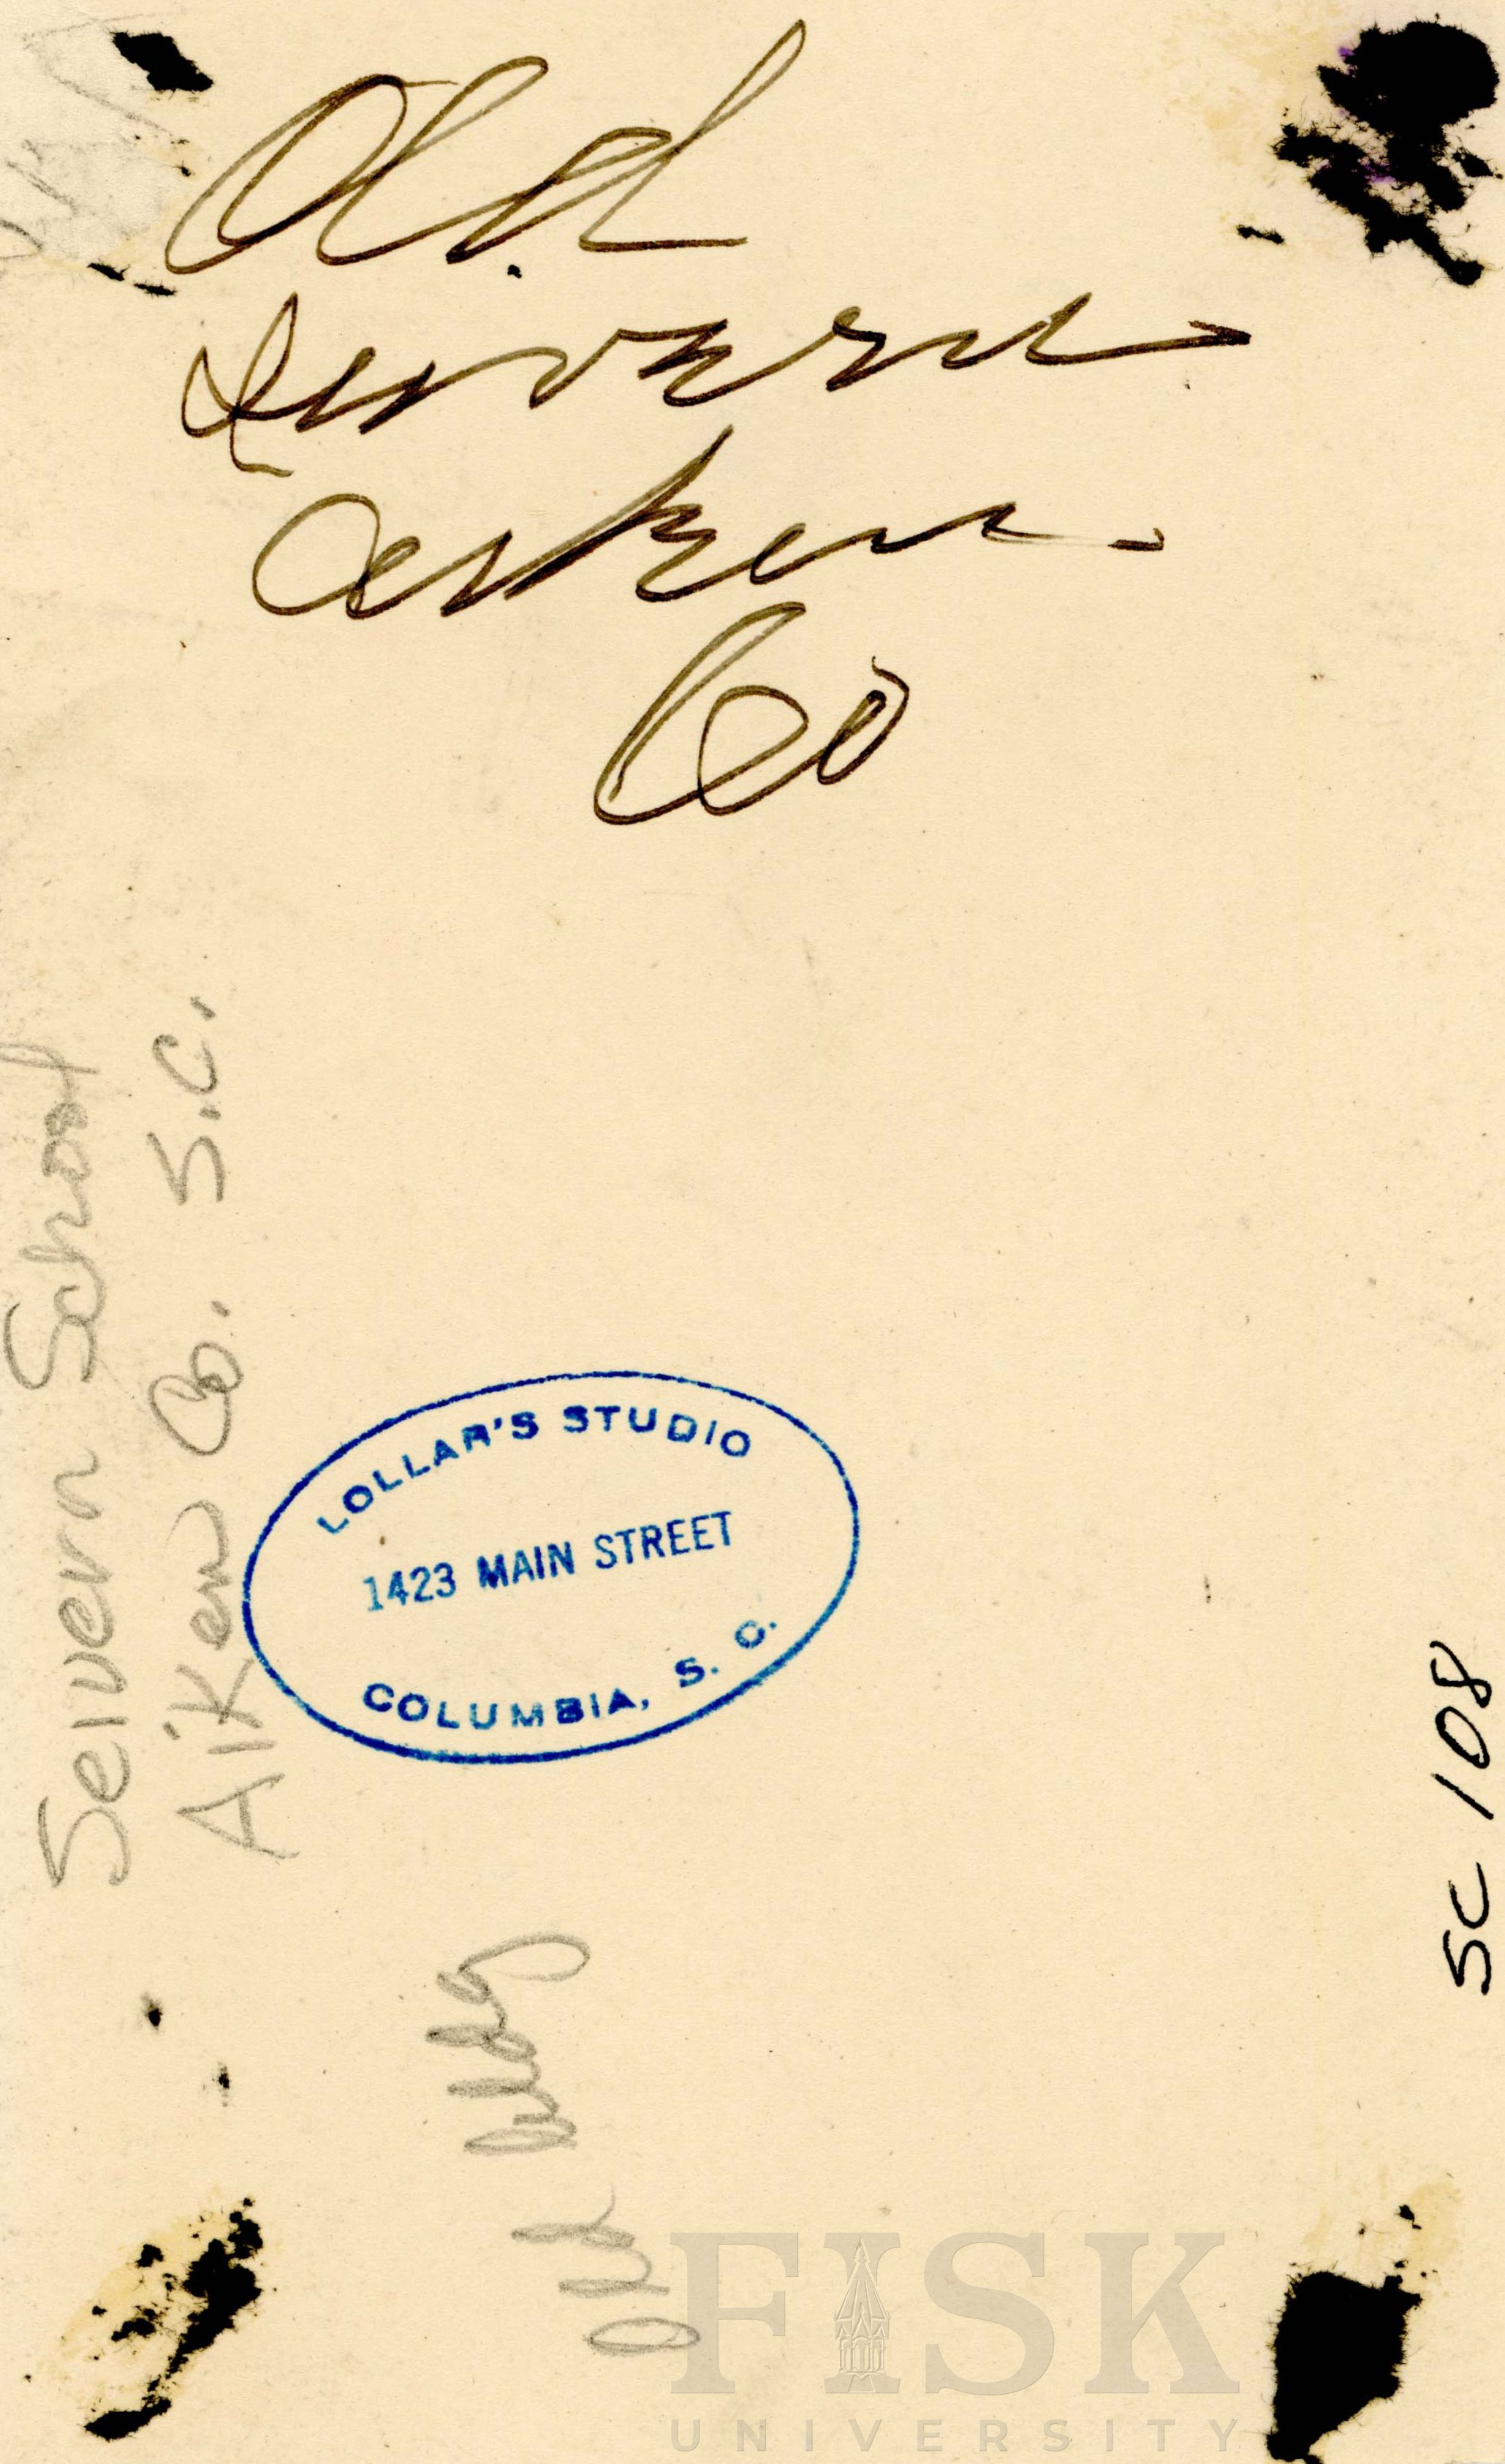 Old
Seivern
Aiken
Co
Seivern School
Aiken Co. S.C.
LOLLAR'S STUDIO
1423 MAIN STREET
COLUMBIA, S. C.
Old bldg
SC 108
FISK
UNIVERSITY